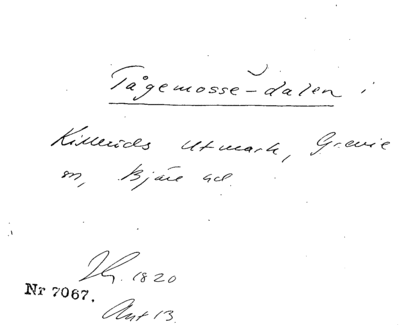 Tågemosse-dalen i
Killeröds Utmark, Grevie
sn, Bjäre hd.
1820
Nr 7067.
Ant 13.